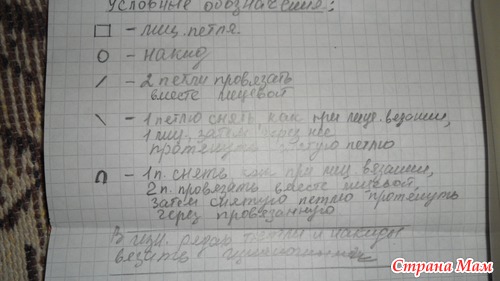 Условные обозначения:
□ - лиц. петля.
○ - накид
/ - 2 петли провязать
вместе лицевой
\ - 1 петлю снять как при лице. вязании,
1 лиц. затем через нее
протянуть петлю
∩ - 1 п. снять как при лиц вязании,
2 п. провязать вместе лицевой,
затем снятую петлю протянуть
через провязанную
В изн. рядах петли и накиды
вязать
Страна Мам